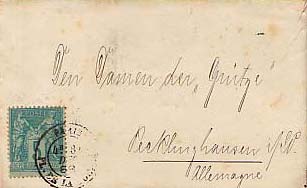 Den Damen der „Grütze"
Recklinghausen i/W.
Allemagne
PARIS